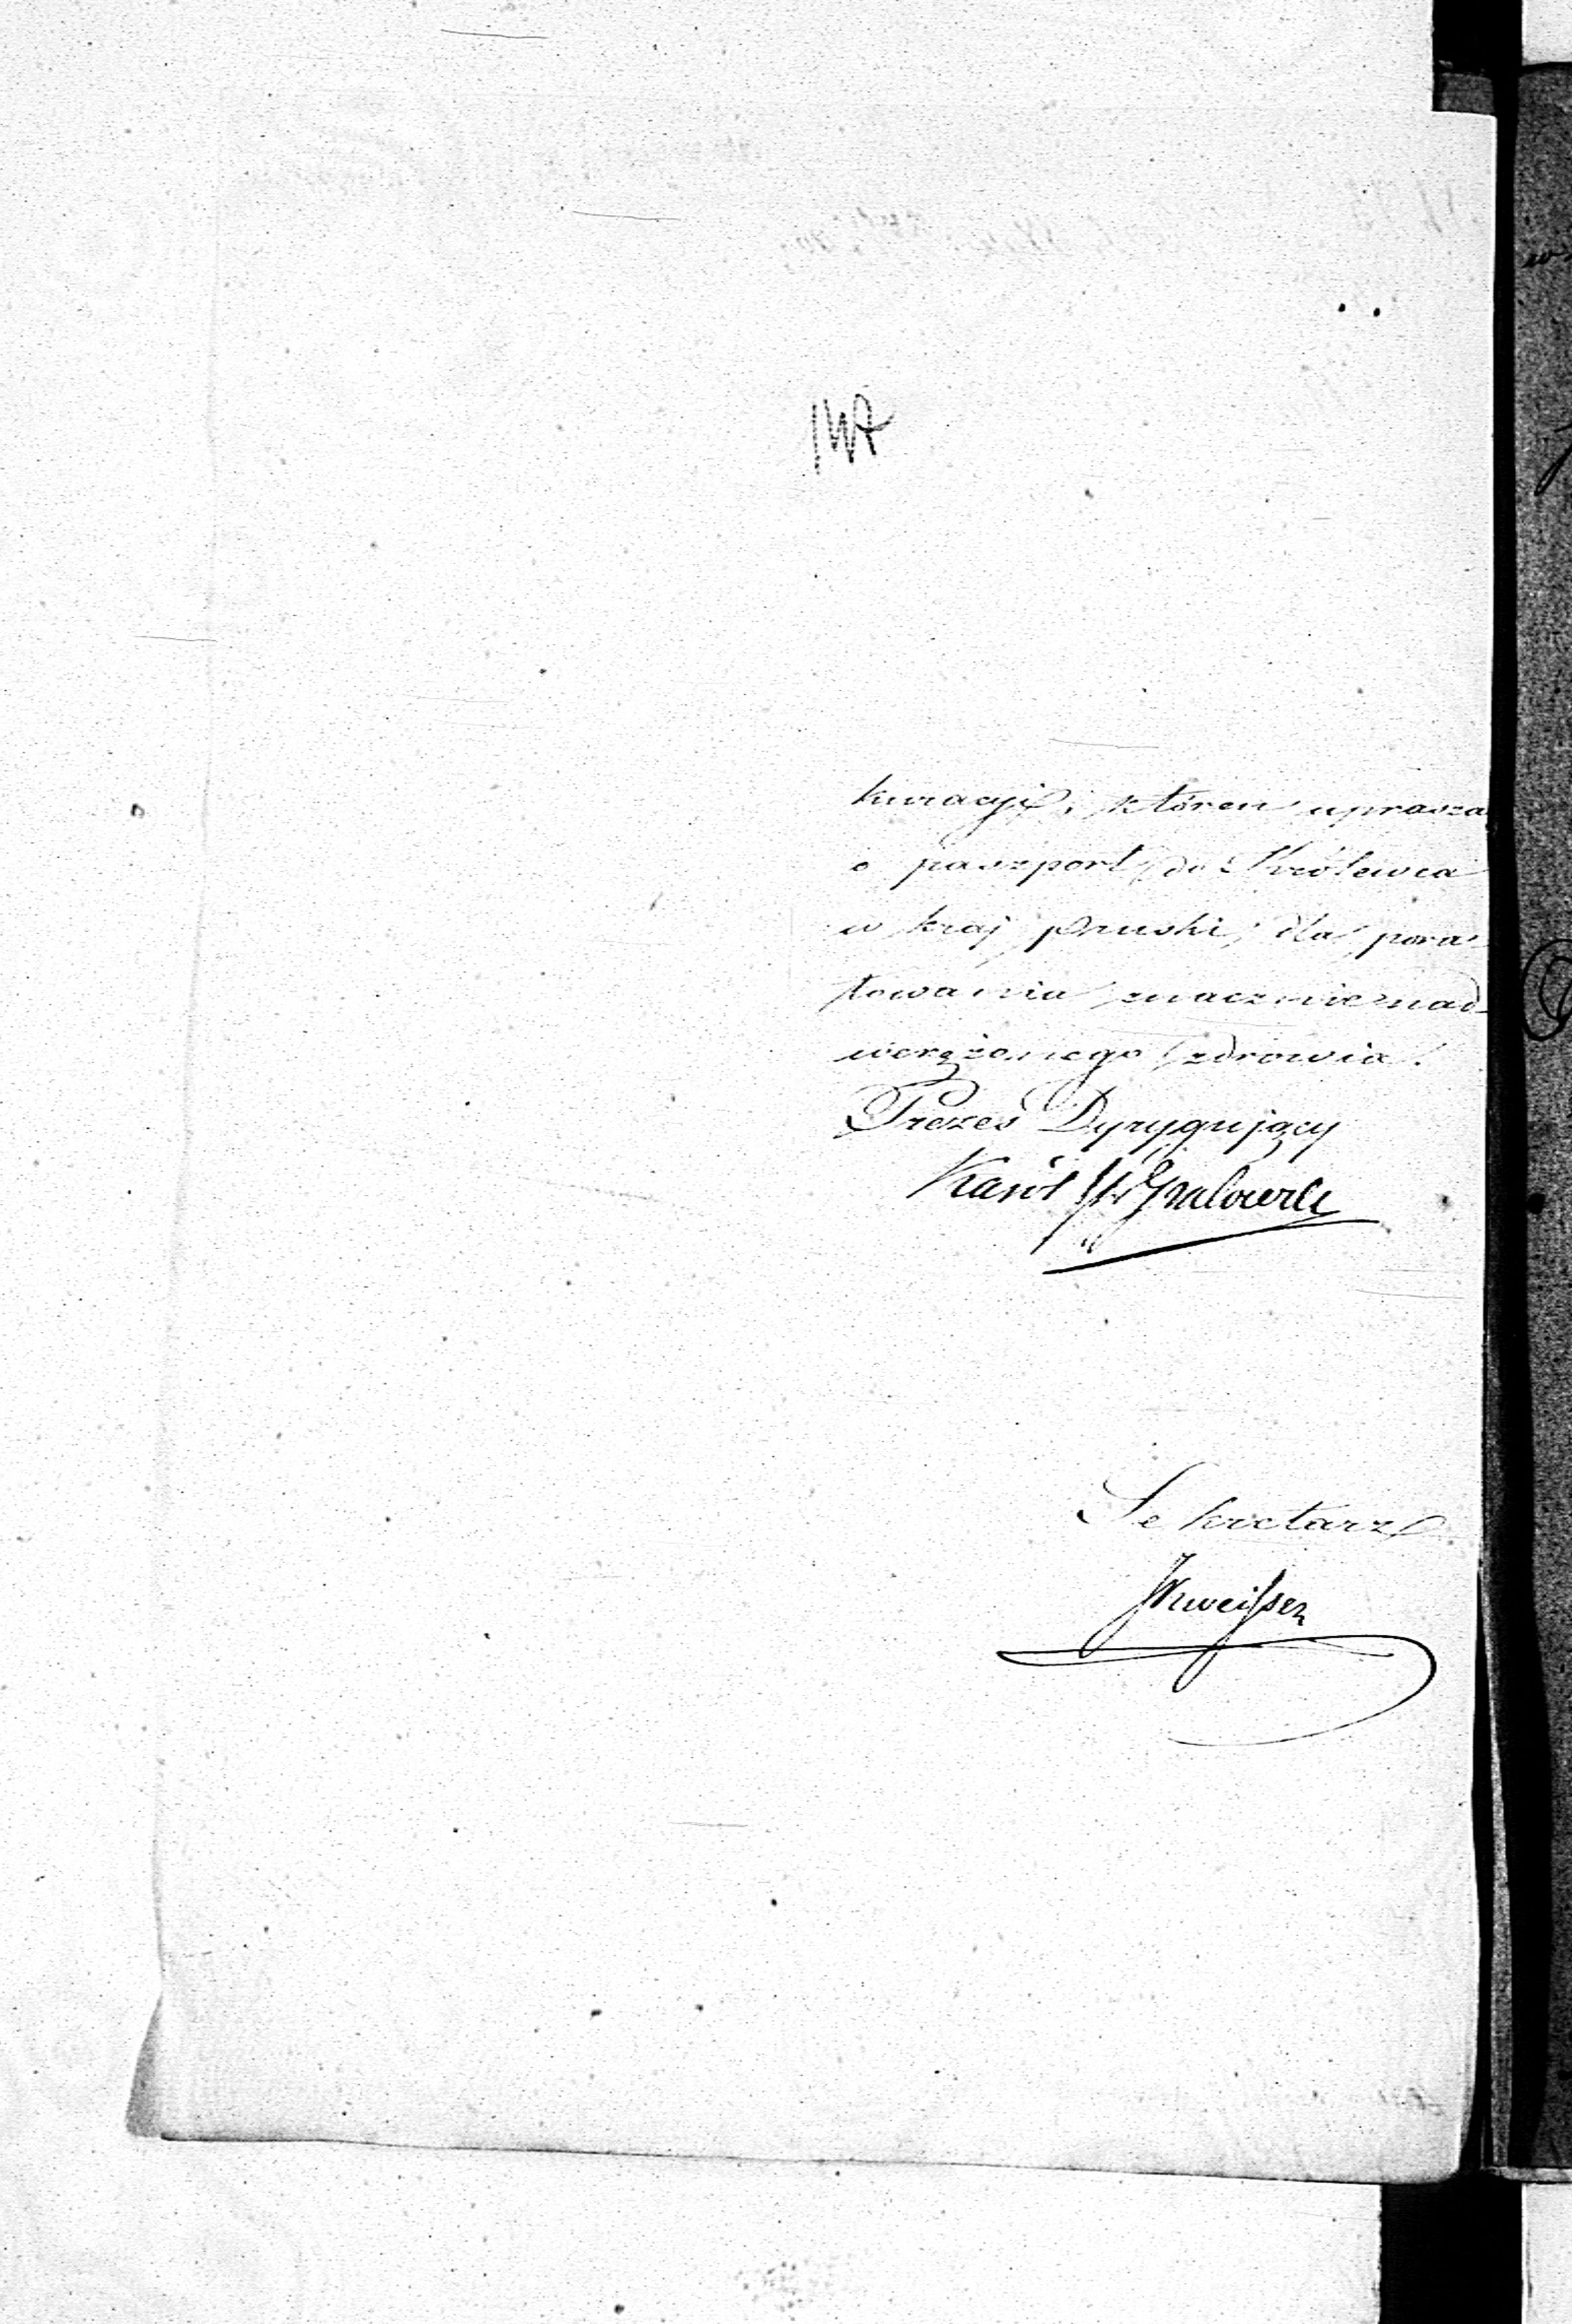 kuracyi, któren uprasza
o paszport do Królewca
w kraj Pruski, dla pora-
towania znacznie nad-
werężonego zdrowia.
Prezes Dyrygujący
Karól
Sekretarz